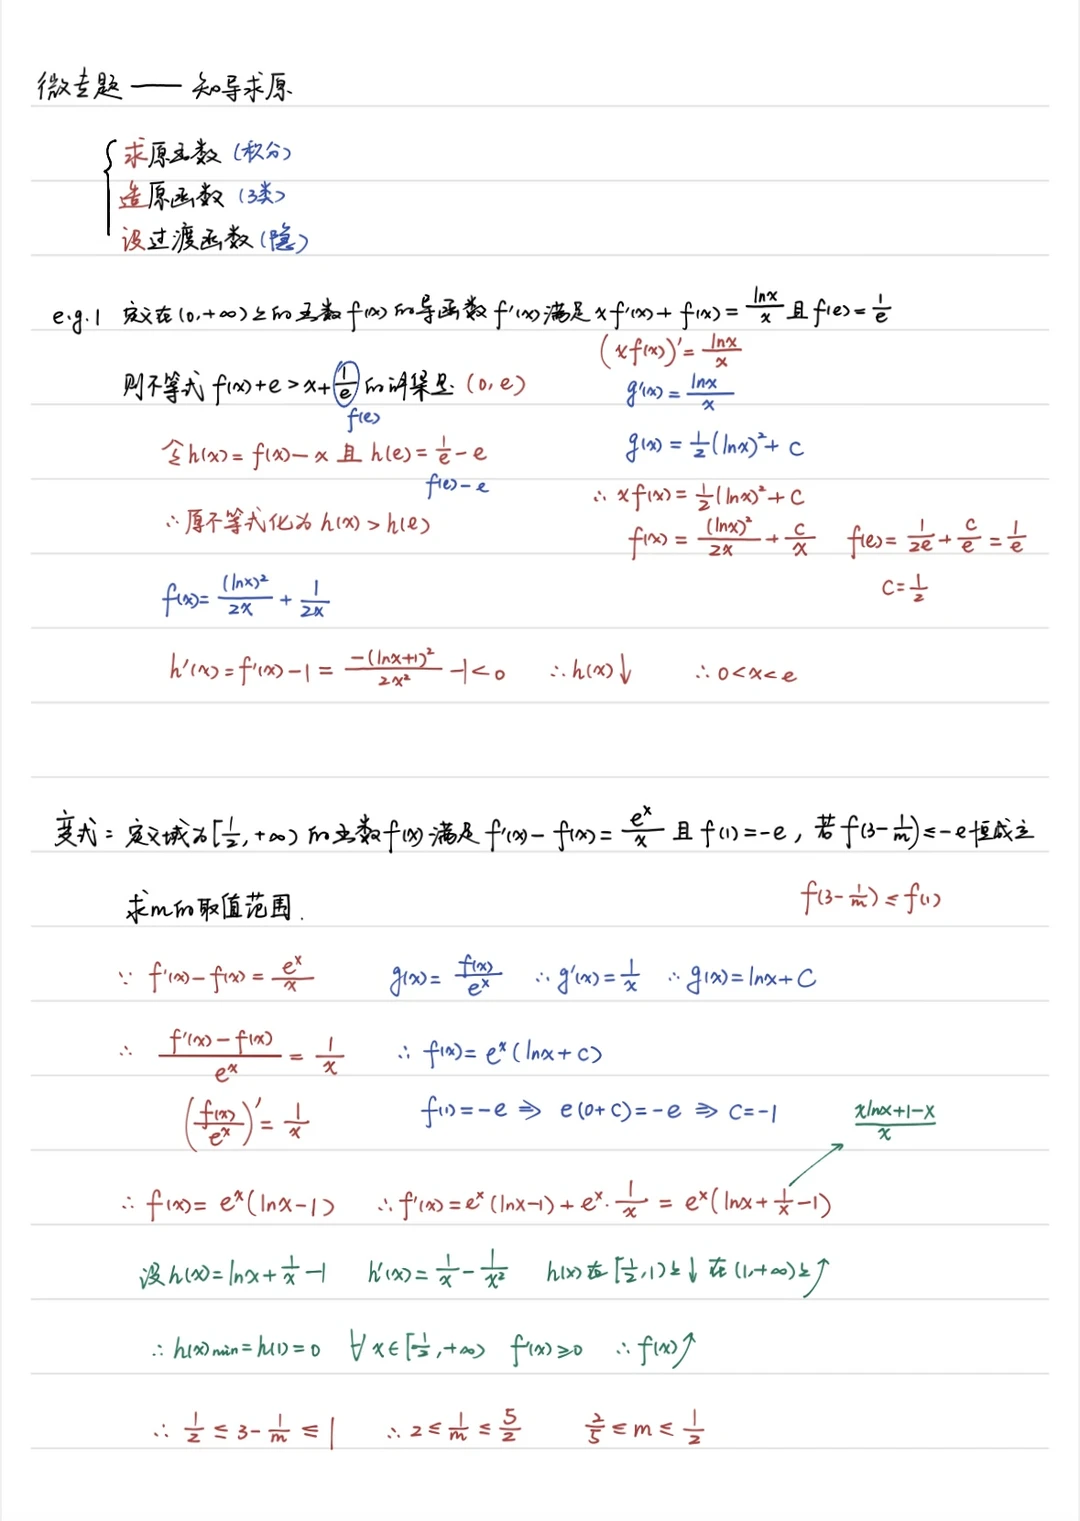 微专题 —— 知导求原
求原函数 (积分)
造原函数 (3类)
设过渡函数 (隐)
e.g.1 定义在(0,+∞)上的函数f(x)的导函数f'(x)满足xf'(x)+f(x)=lnx/x 且f(e)=1/e
(xf(x))'=lnx/x
则不等式f(x)+e>x+1/e的解集是(0,e)
f(e)
g'(x)=lnx/x
令h(x)=f(x)-x 且 h(e)=1/e-e
f(e)-e
g(x)=1/2(lnx)²+C
∴xf(x)=1/2(lnx)²+C
∴原不等式化为h(x)>h(e)
f(x)=(lnx)²/2x+C/x f(e)=1/2e+C/e=1/e
C=1/2
f(x)=(lnx)²/2x+1/2x
h'(x)=f'(x)-1=-(lnx+1)²/2x²-1<0 ∴h(x)↓ ∴0<x<e
变式: 定义域为[1/2,+∞)的函数f(x)满足f'(x)-f(x)=e^x/x 且f(1)=-e, 若f(3-1/m)≤-e恒成立
求m的取值范围. f(3-1/m)≤f(1)
∵ f'(x)-f(x)=e^x/x g(x)=f(x)/e^x ∴g'(x)=1/x ∴g(x)=lnx+C
∴ (f'(x)-f(x))/e^x=1/x ∴f(x)=e^x(lnx+C)
(f(x)/e^x)'=1/x f(1)=-e ⇒ e(0+C)=-e ⇒ C=-1 (xlnx+1-x)/x
∴f(x)=e^x(lnx-1) ∴f'(x)=e^x(lnx-1)+e^x·1/x=e^x(lnx+1/x-1)
设h(x)=lnx+1/x-1 h'(x)=1/x-1/x² h(x)在[1/2,1)上↓在(1,+∞)上↑
∴h(x)min=h(1)=0 ∀x∈[1/2,+∞) f'(x)≥0 ∴f(x)↑
∴1/2≤3-1/m≤1 ∴2≤1/m≤5/2 2/5≤m≤1/2